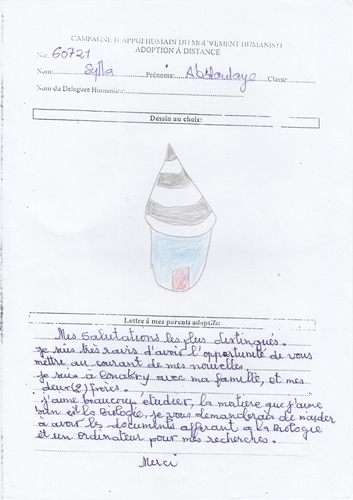 CAMPAGNE D'APPUI HUMAIN DU MOUVEMENT HUMANISTE
ADOPTION À DISTANCE
No: 60721
Nom: Sylla Prénoms: Abdoulaye Classe:
Nom du Délégué Humaniste:
Dessin au choix:
Lettre à mes parents adoptifs:
Mes Salutations les plus distingués.
Je suis très ravis d'avoir l'opportunité de vous
mettre au courant de mes nouvelles.
Je suis à Conakry avec ma famille, et mes
deux (2) frères.
J'aime beaucoup étudier, la matière que j'aime
bien est la Biologie, je vous demanderais de m'aider
à avoir les documents afférant a la Biologie
et un Ordinateur pour mes recherches.
Merci